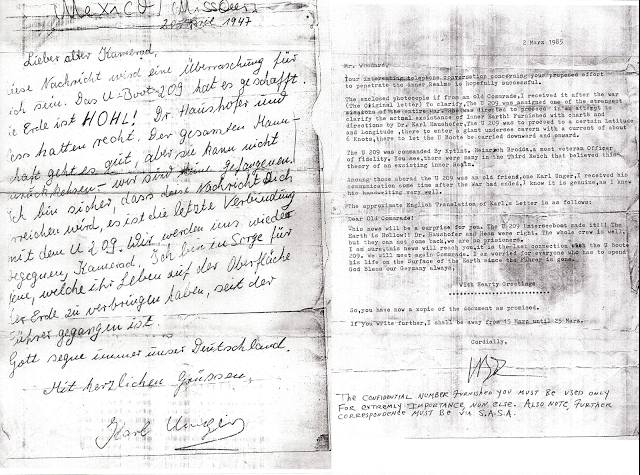 Mexico! (Missouri)
1947
Lieber alter Kamerad,
diese Nachricht wird eine Überraschung für
Dich sein. Das U-Boot 209 hat es geschafft.
Die Erde ist HOHL! Dr Haushofer und
Hess hatten recht. Der gesamten Mann-
schaft geht es gut, aber sie kann nicht
zurückkehren - wir sind keine Gefangenen.
Ich bin sicher, dass diese Nachricht Dich
erreichen wird, es ist die letzte Verbindung
mit dem U 209. Wir werden uns wieder
begegnen, Kamerad. Ich bin in Sorge für
jene, welche ihr Leben auf der Oberfläche
der Erde zu verbringen haben, seit der
Führer gegangen ist.
Gott segne immer unser Deutschland.
Mit herzlichen Grüssen,
Karl Unger
2 Marz 1985
Mr.
Your interesting telephone conversation concerning your proposed effort
to penetrate the inner Realms is hopefully successful.
The enclosed photocopie if from an old Comrade,I received it after the war
(The original letter) To clarify,The U 209 was assigned one of the strangest
clarify the actual assistance of inner Earth
directions by Dr. Karl Haushofer,The U 209 was to proceed to a certain latitude
and Longitude ,there to enter a giant undersea cavern with a current of about
6 Knots,there to let the U Boote be carried downward and onward.
The U 209 was commanded By Kptlnt. Heinrich Brodda,a most veteran Officer
of fidelity,You see,there were many in the Third Reich that believed this
theory of an existing inner Realm.
Among those abord the U 209 was as old friend,one Karl Unger,I received his
communication some time after the War had ended,I know it is genuine,as I knew
his handwriting very well.
The approximate English Translation of Karl's letter is as follows:
Dear Old Comrade:
This news will be a surprise for you. The U 209 made it!!! The
Earth is Hollow!! Dr. Haushofer and Hess were right. The whole crew is well,
but they can not come back,we are no prisoners.
I am sure,this news will reach you,it is the last connection with the U Boote
209. We will meet again Comrade. I am worried for everyone who has to spend
his life on the Surface of the Earth since the Fuhrer is gone.
God Bless our Germany always.
With Hearty Greetings
So,you have now a xopie of the document as promised.
If you write further,I shall be away from 15 Marz until 25 Marz.
Cordially,
THE CONFIDENTIAL NUMBER FURNISHED YOU MUST BE USED ONLY
FOR EXTREMLY IMPORTANCE, NON ELSE. ALSO NOTE, FURTHER
CORRESPONDENCE MUST BE VIA S.A.S.A.